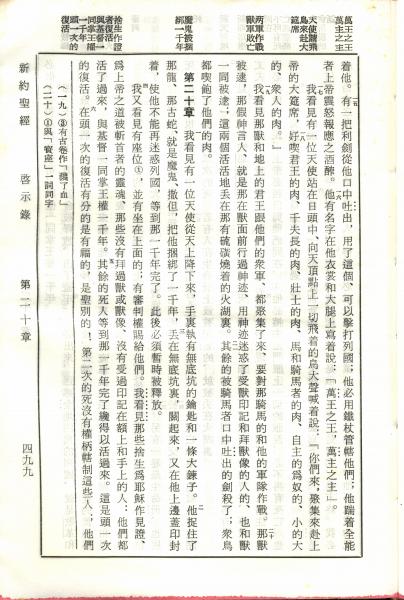 萬王之王
萬主之主
天使請飛
鳥來赴大
筵席
兩軍作戰
獸軍敗亡
魔鬼被捆
綁一千年
捨生作證
者復活
與基督一
同掌王權
一千年
頭一次的
復活
着他。有一把利劍從他口中吐出，用了這個，可以擊打列國；他必用鐵杖管轄他們；他踹着全能
者上帝震怒報應之酒醡。他有名字在他衣裳和大腿上寫着說：「萬王之王，萬主之主」。
我看見有一位天使站在日頭中，向天頂點上一切飛着的鳥大聲喊着說：「你們來，聚集來赴上
帝的大筵席，好喫君王的肉、千夫長的肉、壯士的肉、馬和騎馬者的肉，自主的爲奴的、小的大
的、衆人的肉。」
我看見那獸和地上的君王跟他們的衆軍，都聚集了來，要對那騎馬的和他的軍隊作戰。那獸
被逮，那假神言人、就是那在獸面前行過神迹、用神迹迷惑了受獸印記和拜獸像的人的、也和獸
一同被逮；這兩個活活地丟在那有硫磺燒着的火湖裏。其餘的被騎馬者口中吐出的劍殺了；衆鳥
都喫飽了他們的肉。
第二十章 我看見有一位天使從天上降下來，手裏執有無底坑的鑰匙和一條大鍊子。他捉住了
那龍、那古蛇、就是魔鬼、撒但，把他捆綁了一千年，丟在無底坑裏，關起來，又在他上邊蓋印封
着，使他不能再迷惑列國，等到那一千年完了。此後必須暫時被釋放。
我又看見有座位①，並有坐在上面的，有審判權賜給他們。我看見那些捨生爲耶穌作見證、
爲上帝之道被斬首者的靈魂、那些沒有拜過獸或獸像、沒有受過印記在額上和手上的人；他們都
活了過來，與基督一同掌王權一千年。其餘的死人等到那一千年完了纔得以活過來。這是頭一次
的復活。在頭一次的復活有分的是有福的，是聖別的！第二次的死沒有權柄轄制這些人；他們
（一九）③有古卷作「濺了血」
（二十）①與「寶座」一詞同字
新約聖經 啓示錄 第二十章 四九九